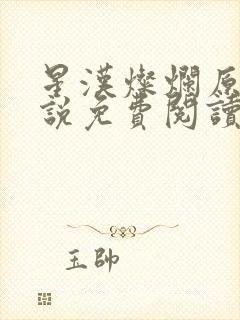 星漢燦爛原
說免費閱讀
玉帥